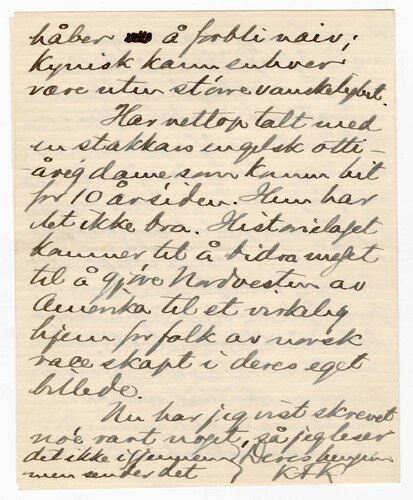 håber å forbli naiv;
kynisk kann enhver
være uten større vanskelighet.
Har nettop talt med
en stakkars engelsk otti-
årig dame som kamm hit
for 10 år siden. Hun har
det ikke bra. Historielaget
kammer til å bidra meget
til å gjöre Nordvesten av
Amerika til et virkelig
hjem for folk av norsk
race skapt i deres eget
billede.
Nu har jeg vist skrevet
noe rart noget, så jeg leser
det ikke igjennem Deres
men sender det KFK